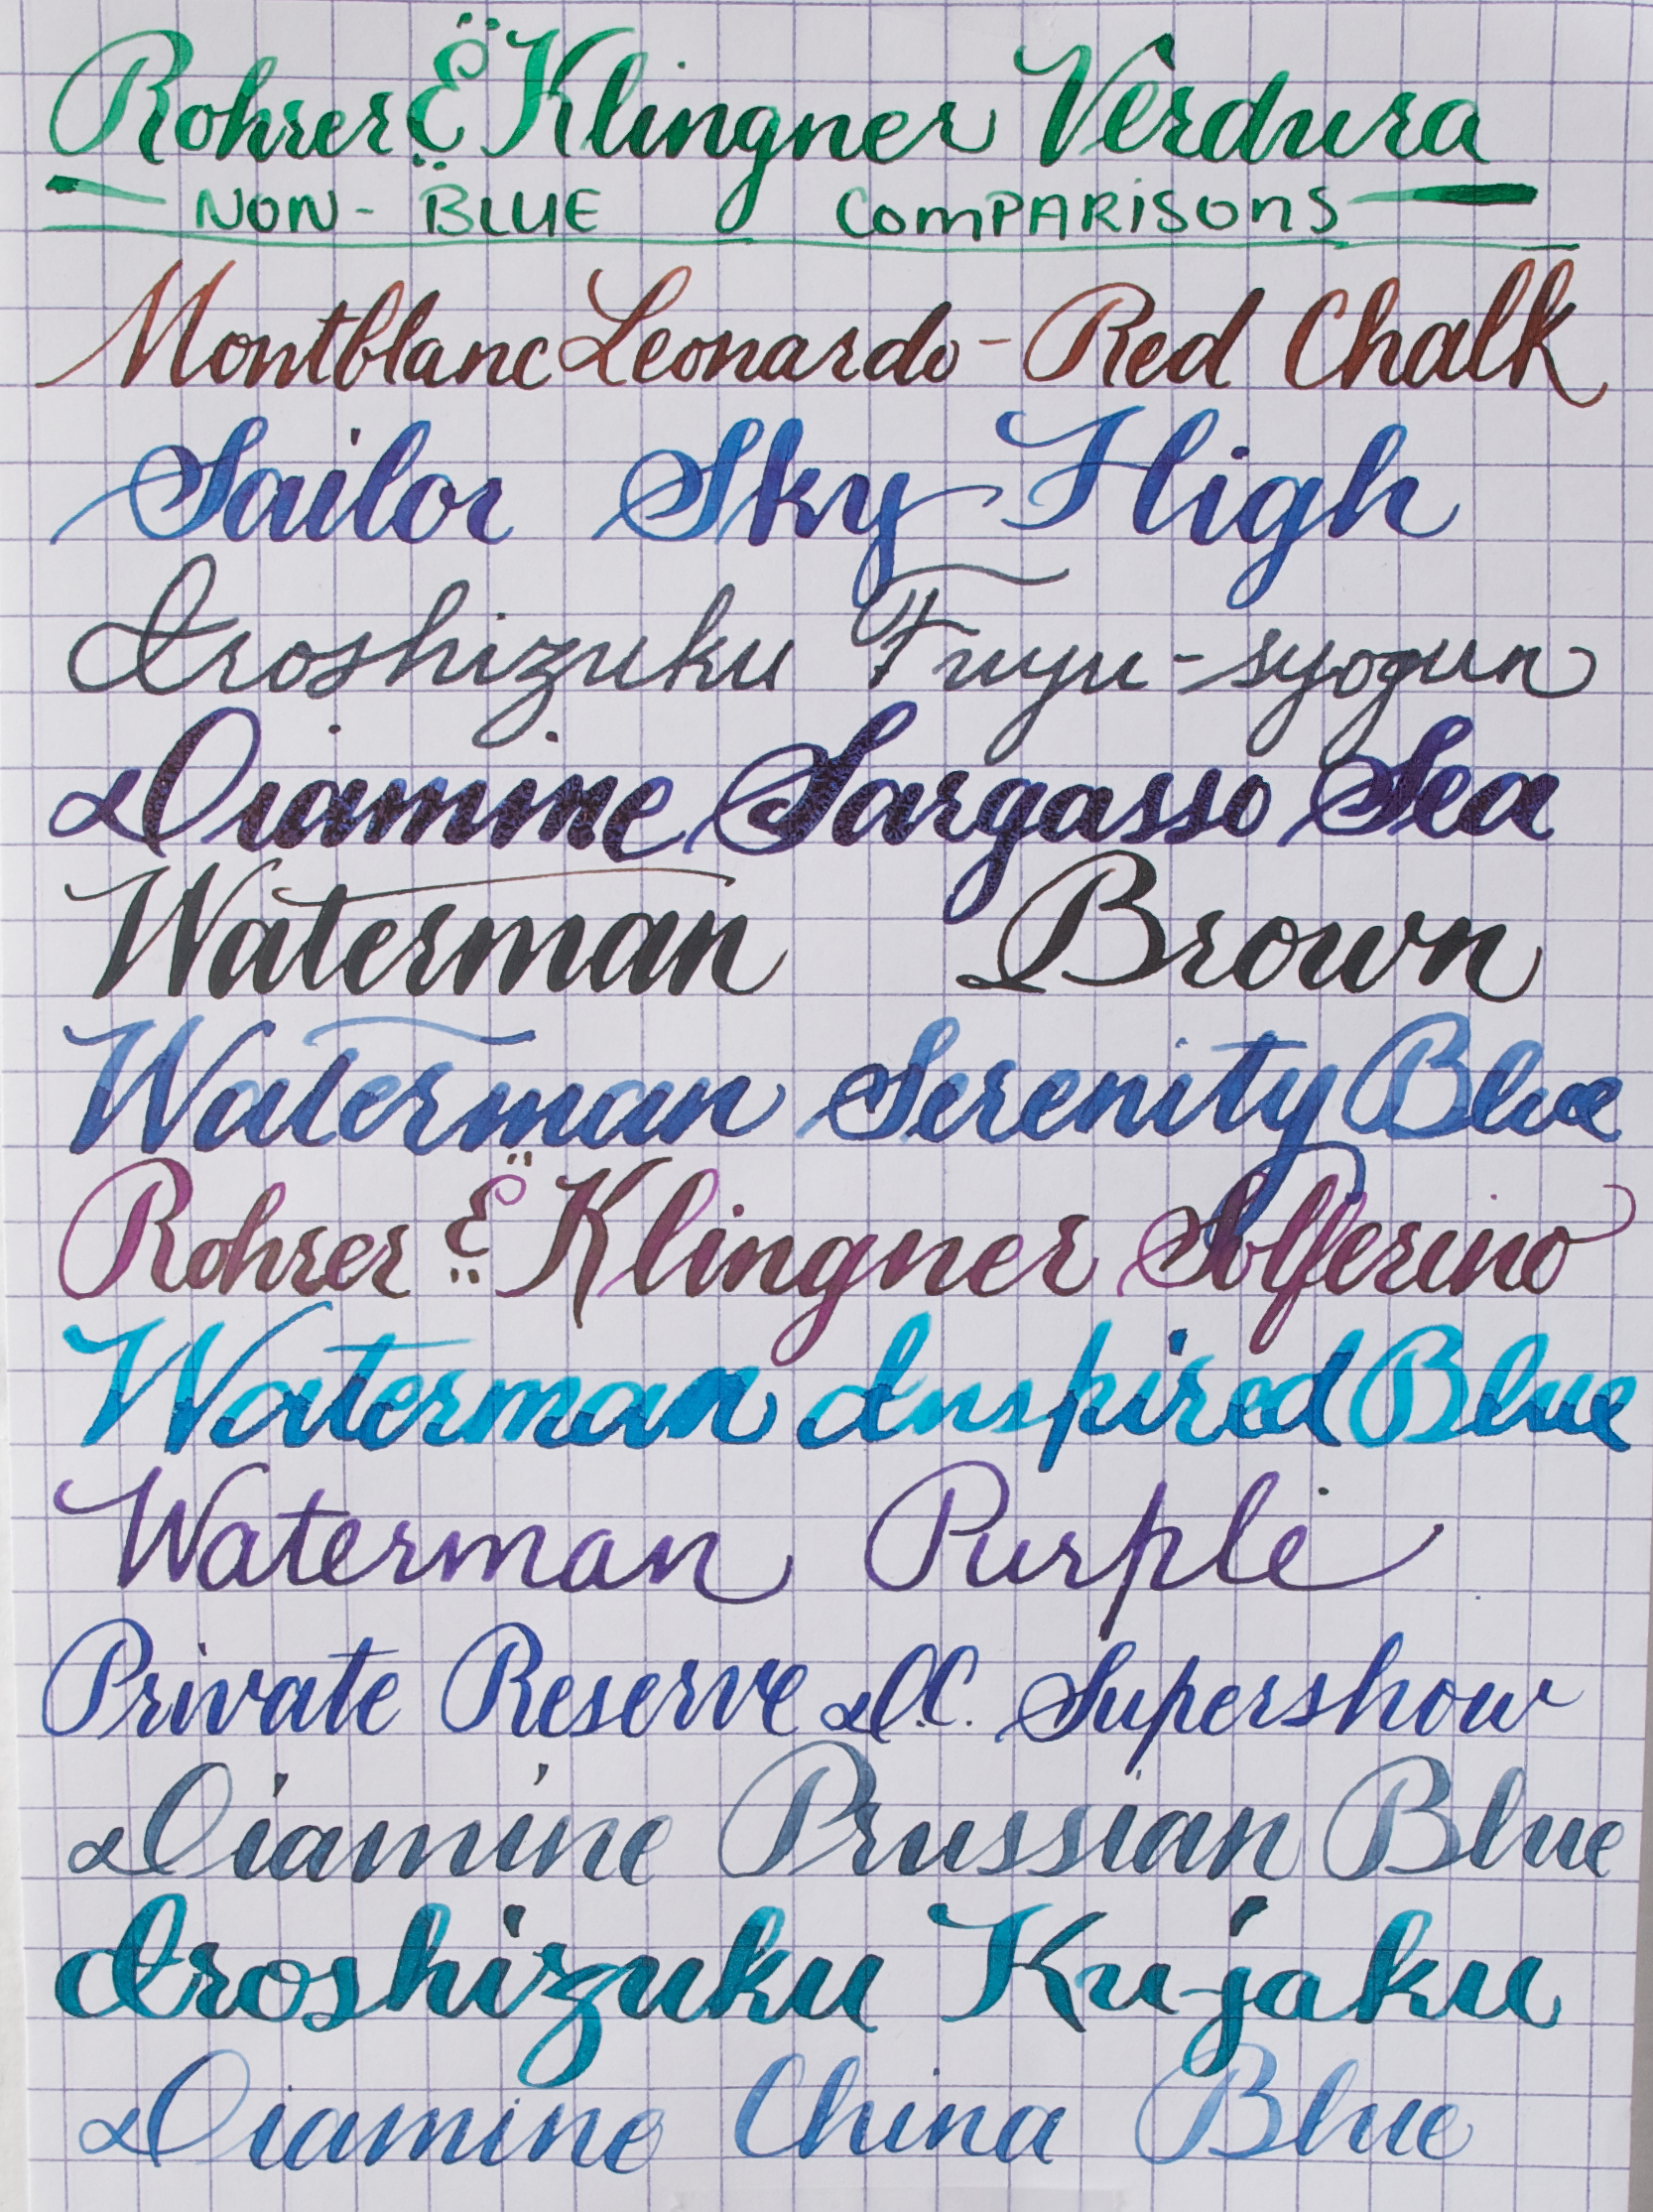 Rohrer & Klingner Verdura
NON-BLUE COMPARISONS
Montblanc Leonardo - Red Chalk
Sailor Sky High
Iroshizuku Fuyu-syogun
Diamine Sargasso Sea
Waterman Brown
Waterman Serenity Blue
Rohrer & Klingner Solferino
Waterman Inspired Blue
Waterman Purple
Private Reserve D.C. Supershow
Diamine Prussian Blue
Iroshizuku Ku-jaku
Diamine China Blue